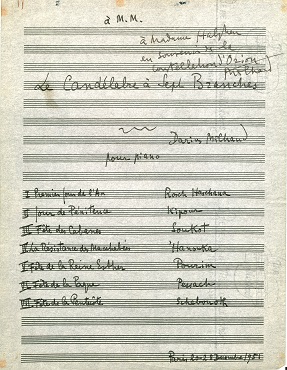 à M.M.
à Madame Halphen
en souvenir de la
constellation d'Orion
Milhaud
Le Candélabre à Sept Branches
Darius Milhaud
pour piano
I Premier jour de l'An Rosch Haschana
II Jour de Pénitence Kipour
III Fête des Cabanes Soukot
IV La Résistance des Macchabées 'Hanouka
V Fête de la Reine Esther Pourim
VI Fête de la Pâque Pessach
VII Fête de la Pentecôte Schebouoth
Paris Décembre 1951